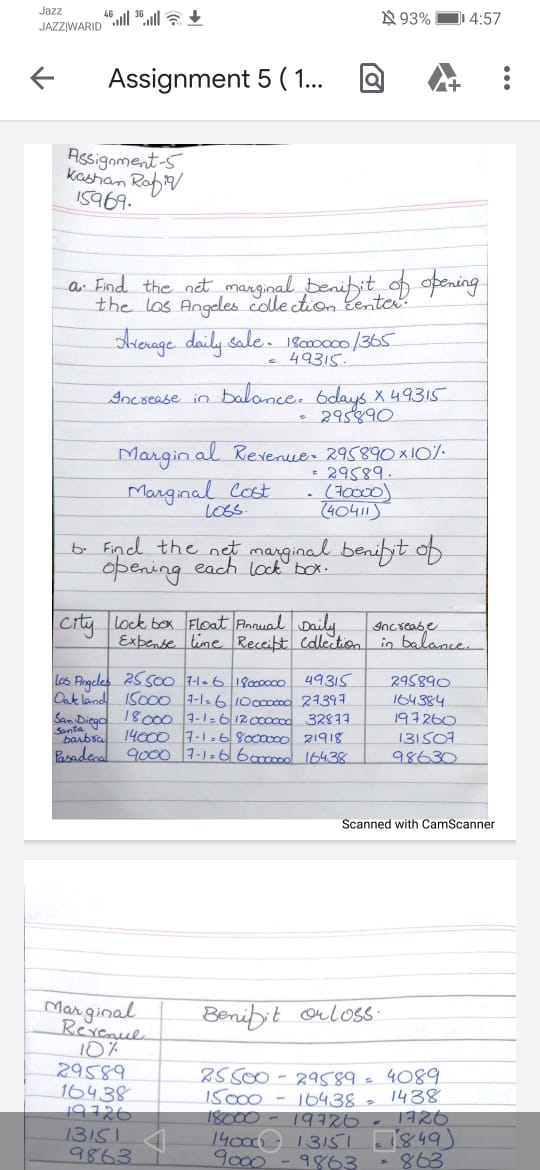 Jazz
JAZZ|WARID
4G 3G
93% 4:57
Assignment 5 ( 1...
Assignment-5
Kashan Rafiq
15969.
a. Find the net marginal benifit of opening
the los Angeles collection center.
Average daily sale = 18000000/365
= 49315.
Increase in balance = 6days x 49315
= 295890
Marginal Revenue = 295890 x 10%
= 29589.
Marginal Cost = (70000)
loss. (40411)
b. Find the net marginal benifit of
opening each lock box.
City lock box Float Annual Daily Increase
Expense time Receipt Collection in balance.
los Angeles 25500 7-1=6 18000000 49315 295890
Oakland 15000 7-1=6 10000000 27397 164384
San Diego 18000 7-1=6 12000000 32877 197260
Santa barbra 14000 7-1=6 8000000 21918 131507
Pasadena 9000 7-1=6 6000000 16438 98630
Scanned with CamScanner
Marginal Benifit or loss.
Revenue
10%
29589 25500 - 29589 = 4089
16438 15000 - 16438 = 1438
19726 18000 - 19726 = 1726
13151 14000 - 13151 = (849)
9863 9000 - 9863 = 863